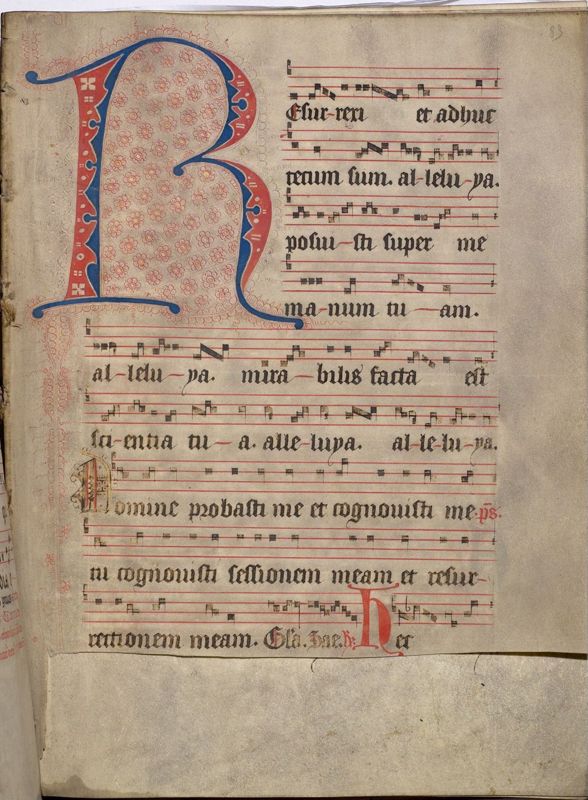 83
REsur-rexi et adhuc
tecum sum. al-lelu-ya.
posui-sti super me
ma-num tu-am.
al-lelu-ya. mira-bilis facta est
sci-entia tu-a. alle-luya. al-le-lu-ya.
Domine probasti me et cognovisti me. ps̄.
tu cognovisti sessionem meam et resur-
rectionem meam. Gła. Hec